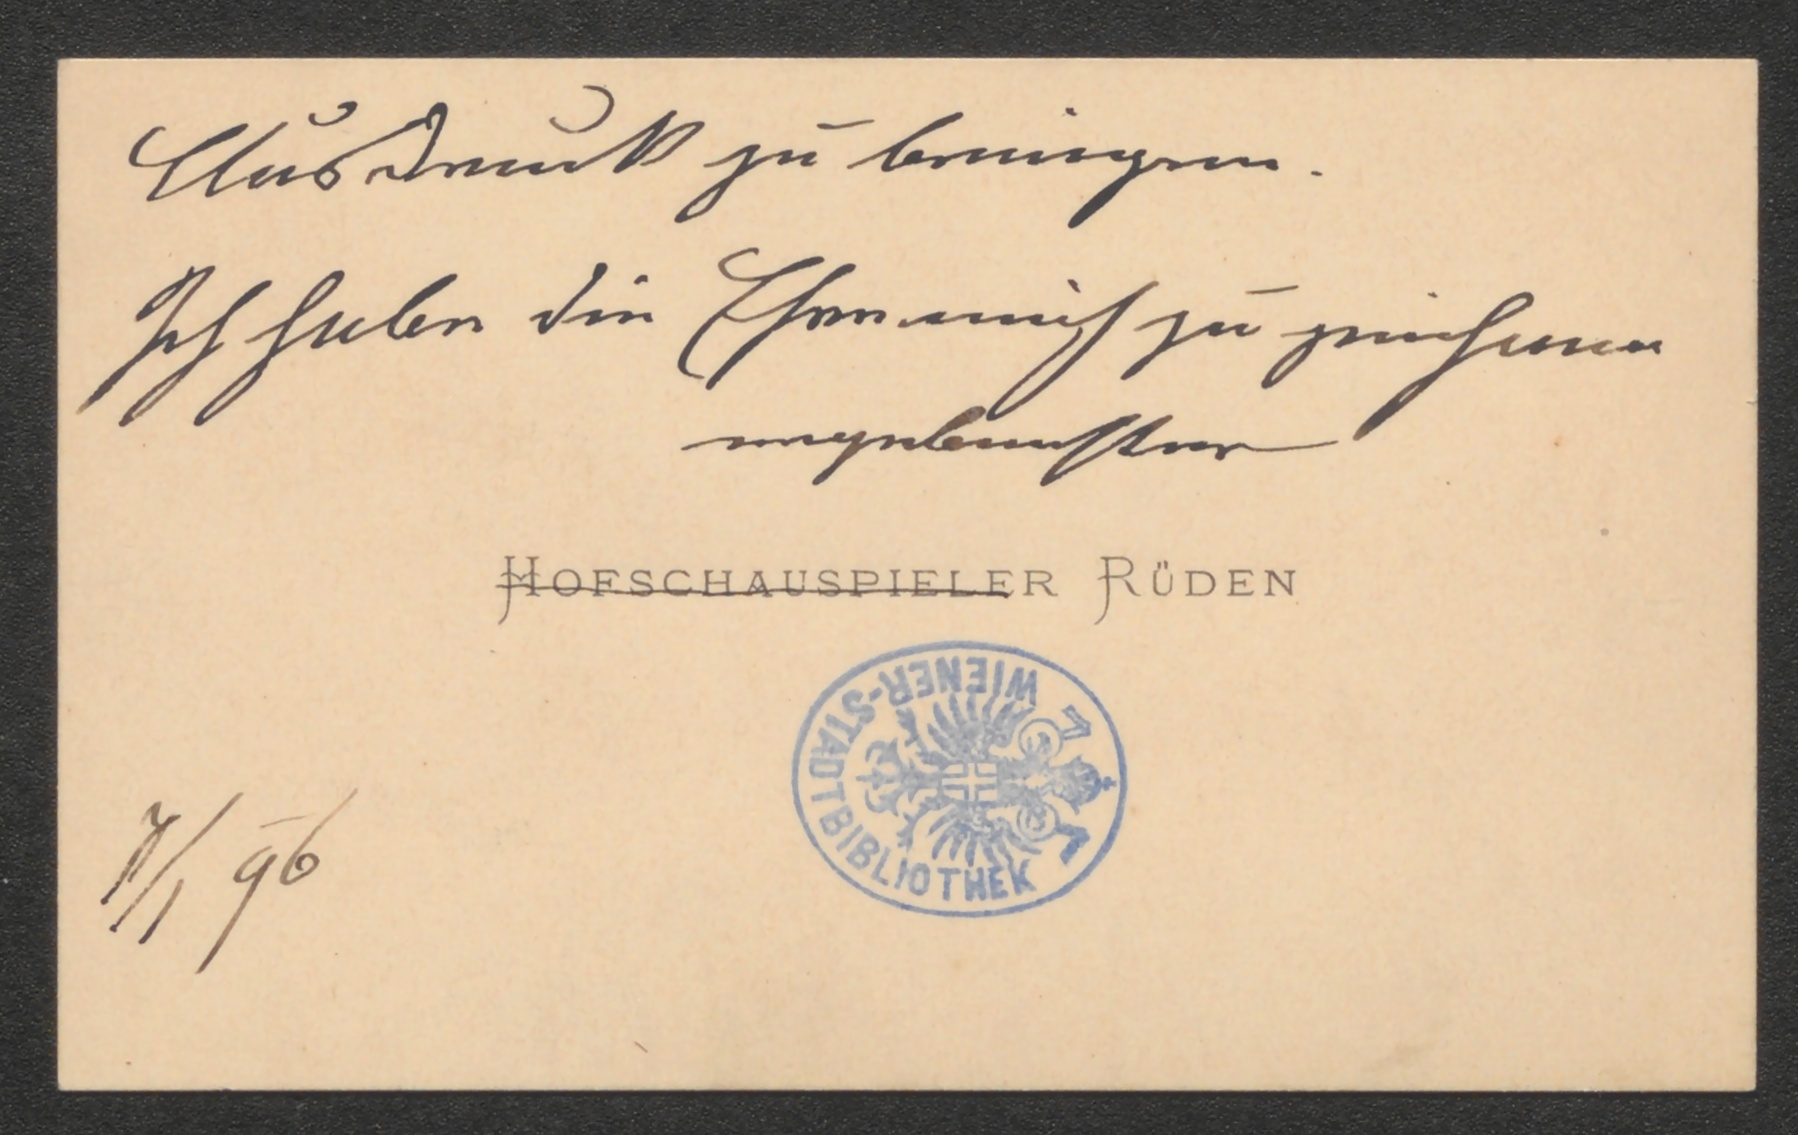 Ausdruck zu bringen.
Ich habe die Ehre mich zu zeichnen
ergebenster
HOFSCHAUSPIELER RÜDEN
WIENER-STADTBIBLIOTHEK
7/1 96